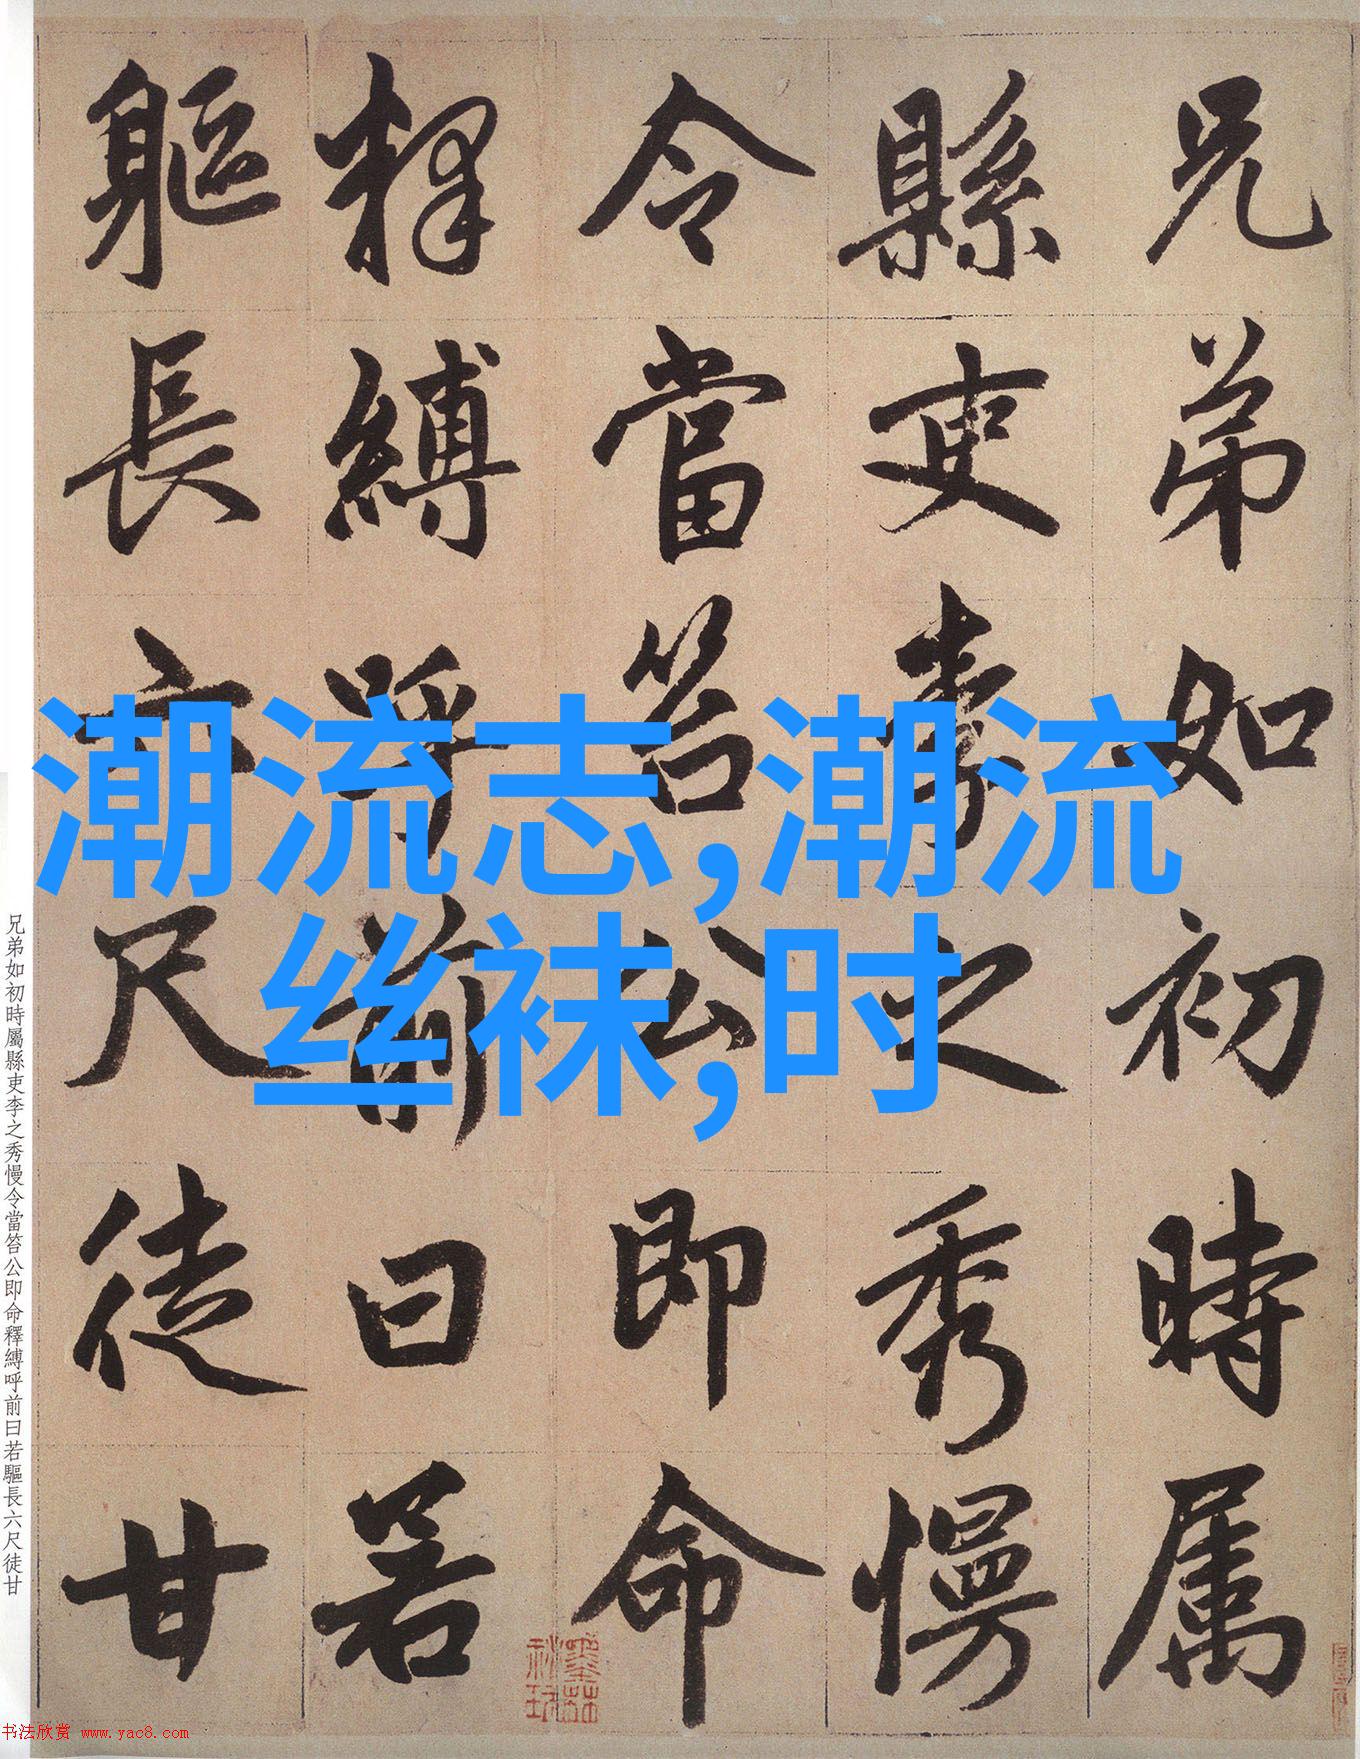 兄弟如初時属
縣吏李之秀慢
令當笞公即命
释縛呼前曰若
軀長六尺徒甘
潮流志,潮流
丝袜,时
兄弟如初時屬縣吏李之秀慢令當笞公即命釋縛呼前曰若驅長六尺徒甘
书法欣赏 www.yac8.com